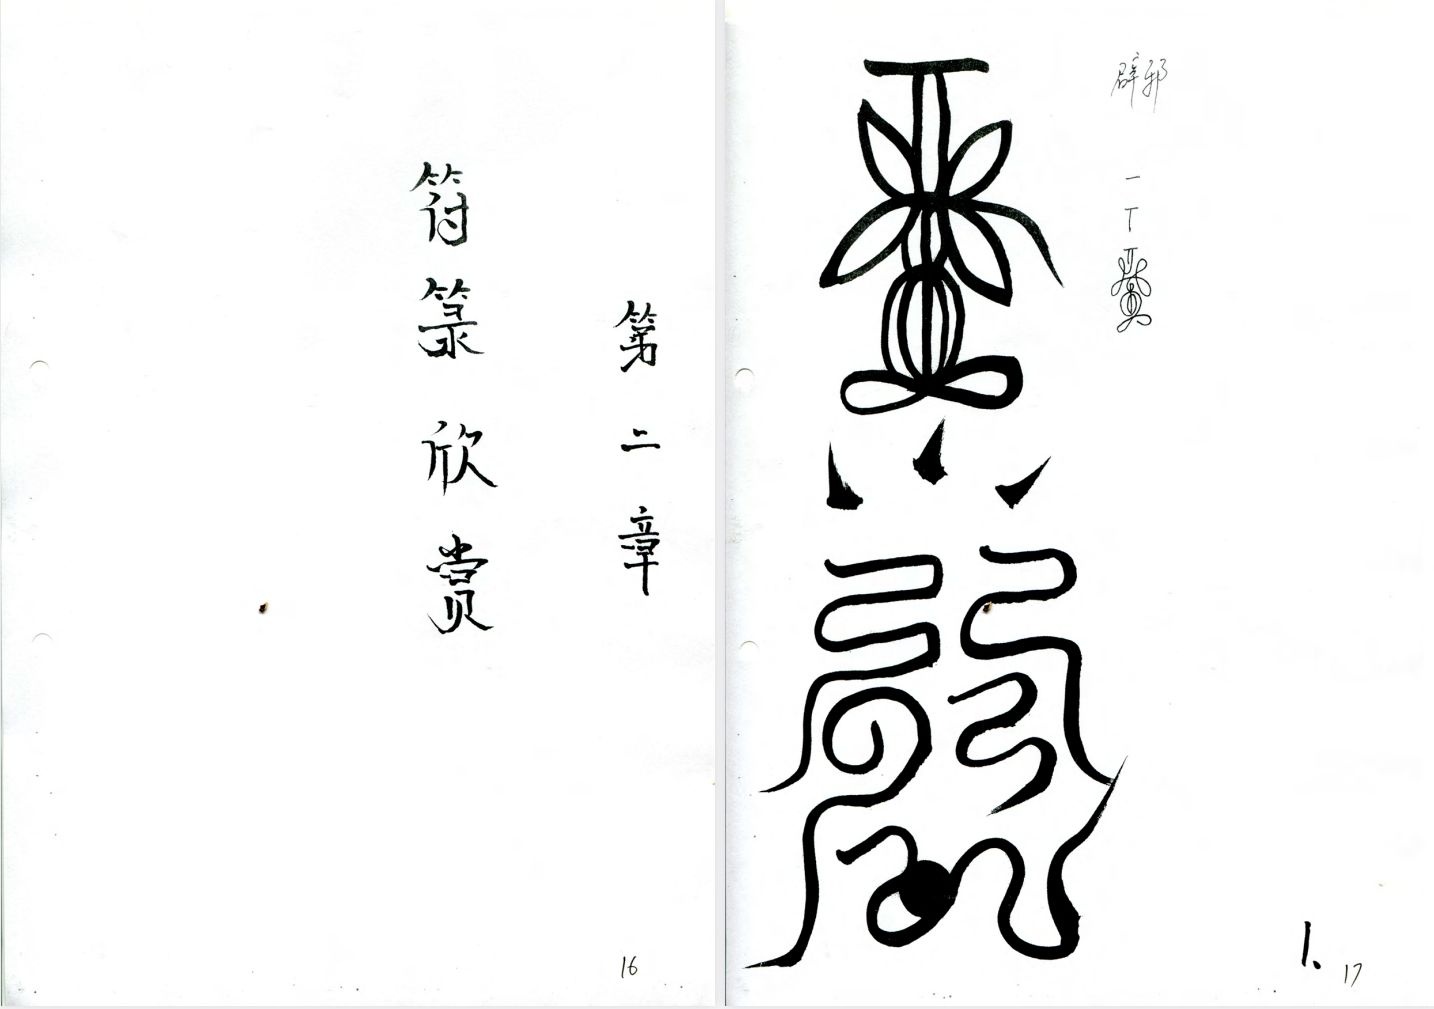 第二章
符箓欣赏
16
辟邪
1.
17